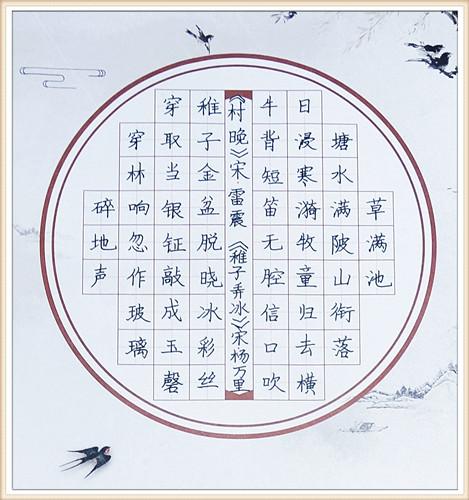 草满池
塘水满陂山衔落
日浸寒漪牧童归去横
牛背短笛无腔信口吹
《村晚》宋 雷震 《稚子弄冰》宋 杨万里
稚子金盆脱晓冰彩丝
穿取当银钲敲成玉磬
穿林响忽作玻璃
碎地声